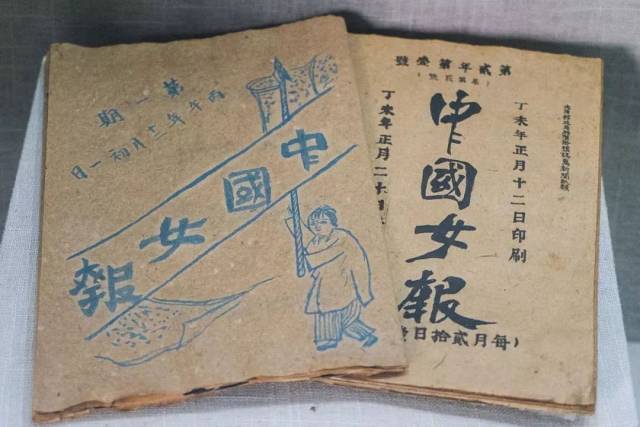 第一期
丙午年十二月初一日
中國女報
第貳年第壹號
丁未年正月十二日印刷
中國女報
丁未年正月二十日
每月貳拾日